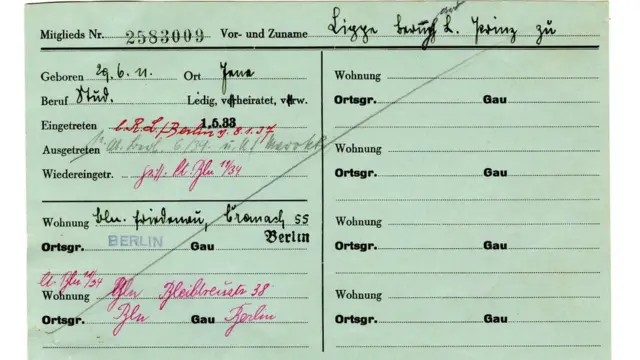 Mitglieds Nr. 2583009 Vor- und Zuname Lippe Bernh L. Prinz zu
Geboren 29.6.11. Ort Jena
Beruf Stud. Ledig, verheiratet, verw.
Eingetreten 1.5.33
Berlin 8.1.37
Ausgetreten
Wiedereingetr. lt. Bln 10/34
Wohnung Bln. Friedenau, Cranach 55
Ortsgr. BERLIN Gau Berlin
lt. Bln 10/34
Wohnung Bln Bleibtreustr 38
Ortsgr. Bln Gau Berlin
Wohnung
Ortsgr. Gau
Wohnung
Ortsgr. Gau
Wohnung
Ortsgr. Gau
Wohnung
Ortsgr. Gau